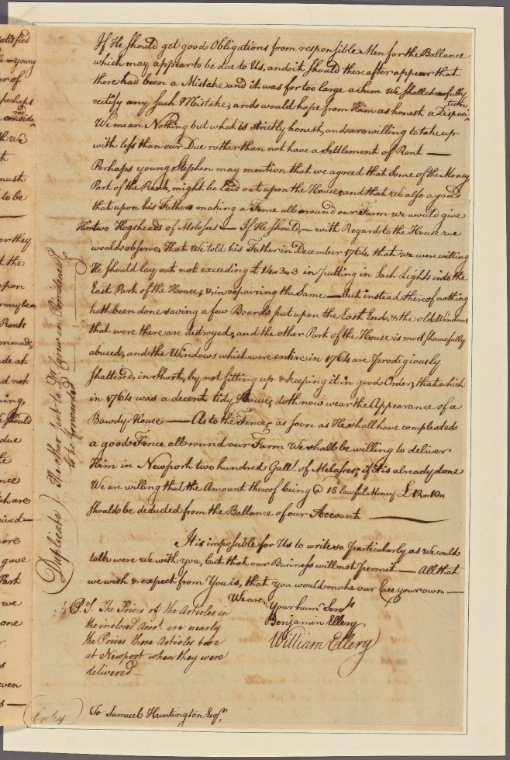 If He should get good Obligations from responsible Men for the Ballance
which may appear to be due to Us, and it should thereafter appear that
there had been a Mistake and it was for too large a sum We shall chearfully
rectify any such Mistake, and would hope from Him as honest a
We mean Nothing but what is strictly honest, and are willing to take up
with less than our Due rather than not have a Settlement of Rent —
Perhaps young Stephen may mention that we agreed that some of the Money
Part of the Rent, might be laid out upon the House, and that we also agreed
that upon his Fathers making a Fence all around our Farm we would give
Him two Hogsheads of Molasses — If He should, — with Regard to the House we
would observe, That We told his Father in December 1764 that we were willing
He should lay out not exceeding in putting in Sash Lights into the
East Part of the House, & in repairing the Same — But instead thereof nothing
hath been done saving a few Boards put upon the East End, & the old Windows
that were there are destroyed, and the other Part of the House is most shamefully
abused, and the Windows which were entire in 1764 are prodigiously
shattered, in short, by not fitting up & keeping it in good Order, that which
in 1764 was a decent tidy House, doth now wear the Appearance of a
Bawdy-House — As to the Fence, as soon as He shall have compleated
a good Fence all round our Farm We shall be willing to deliver
Him in Newport two hundred Gall.s of Molasses, if it is already done
We are willing that the Amount thereof being @ 15 lawful Money
should be deducted from the Ballance of our Account —
It is impossible for Us to write so particularly as we could
talk were we with you, but that our Business will not permit — All that
we wish & expect from You is, that you would make our Case your own —
We are Your hum. Servts
Benjamin Ellery
William Ellery
P.S. The Prices of the Articles in
the inclosed Acct. are nearly
the Prices those Articles bore
at Newport when they were
delivered
To Samuel Huntington Esqr.
(Duplicate) The other sent to in Providence
to be forwarded